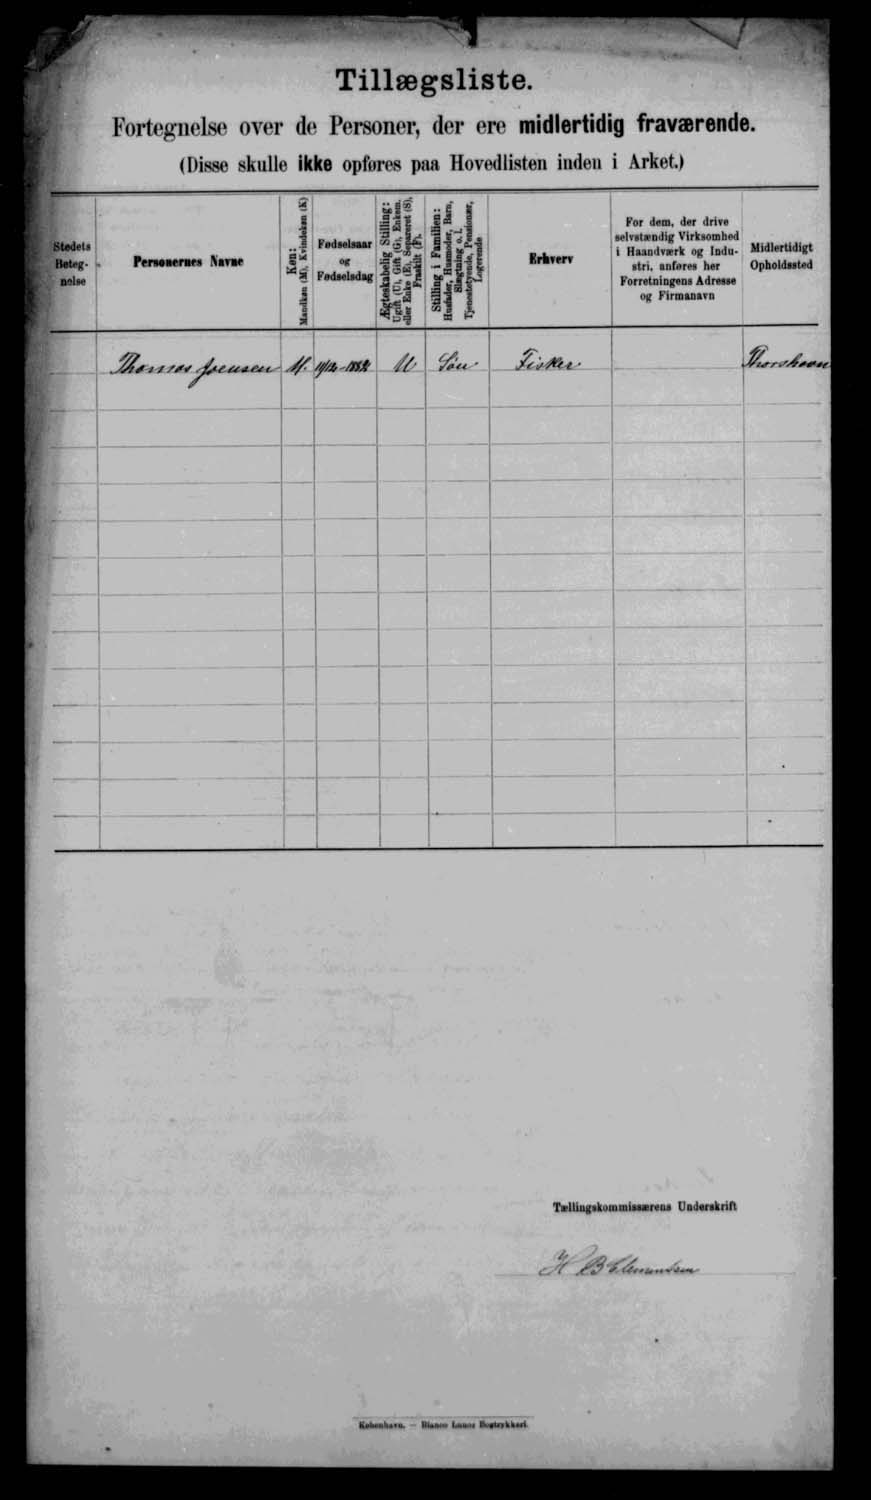 Tillægsliste.
Fortegnelse over de Personer, der ere midlertidig fraværende.
(Disse skulle ikke opføres paa Hovedlisten inden i Arket.)
Stedets
Beteg-
nelse
Personernes Navne
Køn:
Mandkøn (M), Kvindekøn (K)
Fødselsaar
og
Fødselsdag
Ægteskabelig Stilling:
Ugift (U), Gift (G), Enkem.
eller Enke (E), Separeret (S),
Fraskilt (F).
Stilling i Familien:
Husfader, Husmoder, Barn,
Slægtning o. l.
Tjenestetyende, Pensionær,
Logerende
Erhverv
For dem, der drive
selvstændig Virksomhed
i Haandværk og Indu-
stri, anføres her
Forretningens Adresse
og Firmanavn
Midlertidigt
Opholdssted
Thomas Joensen M. 11/12-1882 U Søn Fisker Thorshavn
Tællingskommissærens Underskrift
H B Clementsen
København. — Bianco Lunos Bogtrykkeri.